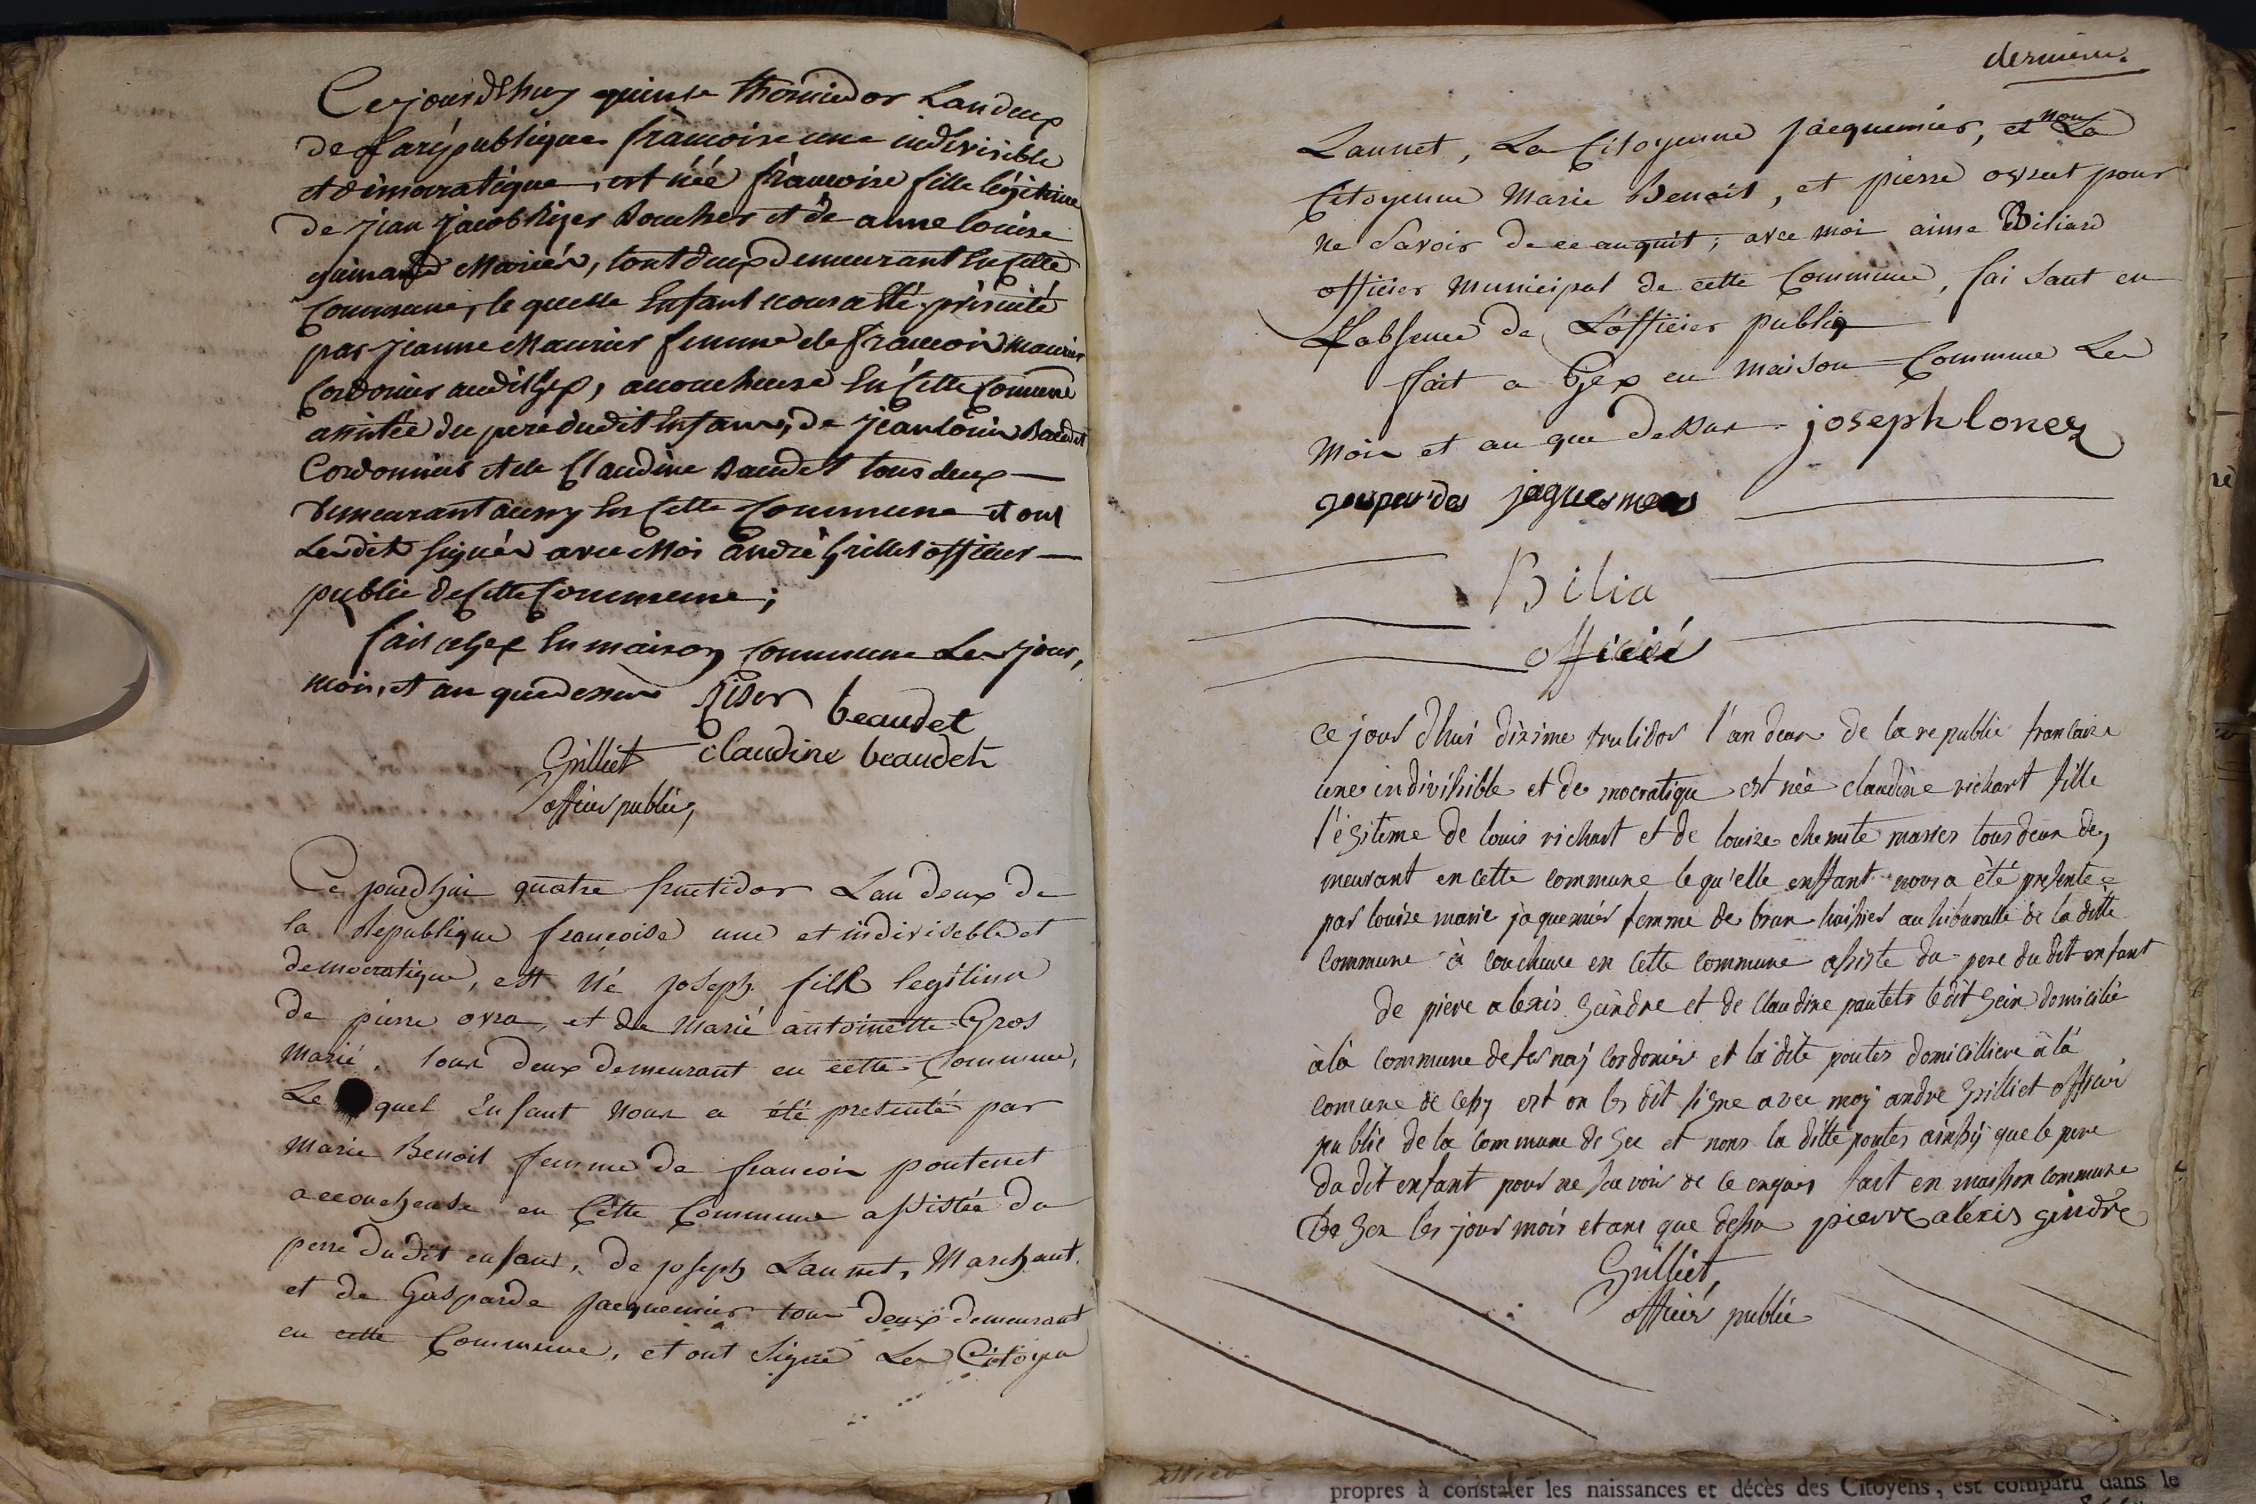 Ce jourdhuy quinse thermidor Landeux
de Larépublique francoise une indivisible
et démocratique, est néé francoise fille légitime
de jean jacob Riser Boucher et de anne louise
guinard Mariés, tout deux demeurant En Cette
Commune, le quelle Enfant nous a êtté présenté
par jeanne Maurier femme de francois maurier
Cordonier audit Gex, accoucheuse En Cette Commune
assistée du pere dudit Enfant, de jean Louis Baudet
Cordonnier et de Claudine Baudet tous deux
demeurant aussy En Cette Commune et ont
Lesdits signés avec Moi André Grilliet officier
public de Cette Commune;
fait a Gex En maison Commune Les jour,
mois, et an que dessus Riser beaudet
Grilliet claudine beaudet
officier public,
Ce jourdhui quatre fructidor Lan deux de
la Republique francoise une et indivisebl et
democratique, est Né joseph fils legitime
de pierre ovra, et de Marie antoinette Gros
Marié, tous deux demeurant en cette Commune,
Le quel Enfant Nous a été presenté par
Marie Benoit femme de francois pontenet
accoucheuse en Cette Commune assistée du
pere du dit enfant, de joseph Launet, Marchant
et de Gasparde jacquemier tous deux demeurant
en cette Commune, et ont signé Les Citoyen
derniere.
Launet, La Citoyenne jacquemier, et non La
Citoyenne Marie Benoit, et pierre ovret pour
ne Savoir de ce enquit; avec moi aime Biliard
officier Municipal de cette Commune, faisant en
Labsence de Lofficier publiq
fait a Gex en maison Commune Les
Mois et an que dessus joseph lonez
gaspardes jaquesmers
Bilia
officié
ce jour dhui dixime frulidor l'an deux de la republic francaise
une indivisible et democratique est née claudine richart fille
l'égitime de louis richart et de louise chemite maries tous deux de,
meurant en cette commune le qu'elle enffant nous a été presentée
par louise marie jaquemier femme de brun huisier au tribunalle de la ditte
commune à coucheuse en cette commune assiste du pere du dit enfant
de piere alexis Geindre et de claudine pautets ledit Gein domicilié
à la commune de sesnaj cordonier et la dite poutes domicilliere à la
comune de cessy est on les dit signe avec moy andre Grilliet officier
public de la commune de Gex et nons la ditte poutes ainssy que le pere
du dit enfant pour ne savoir de ce enquis fait en maisson commune
De Gex les jour mois et ans que dessu pierre aléxis gindre
Grilliet,
officier public
propres à constater les naissances et décès des Citoyens, est comparu dans le